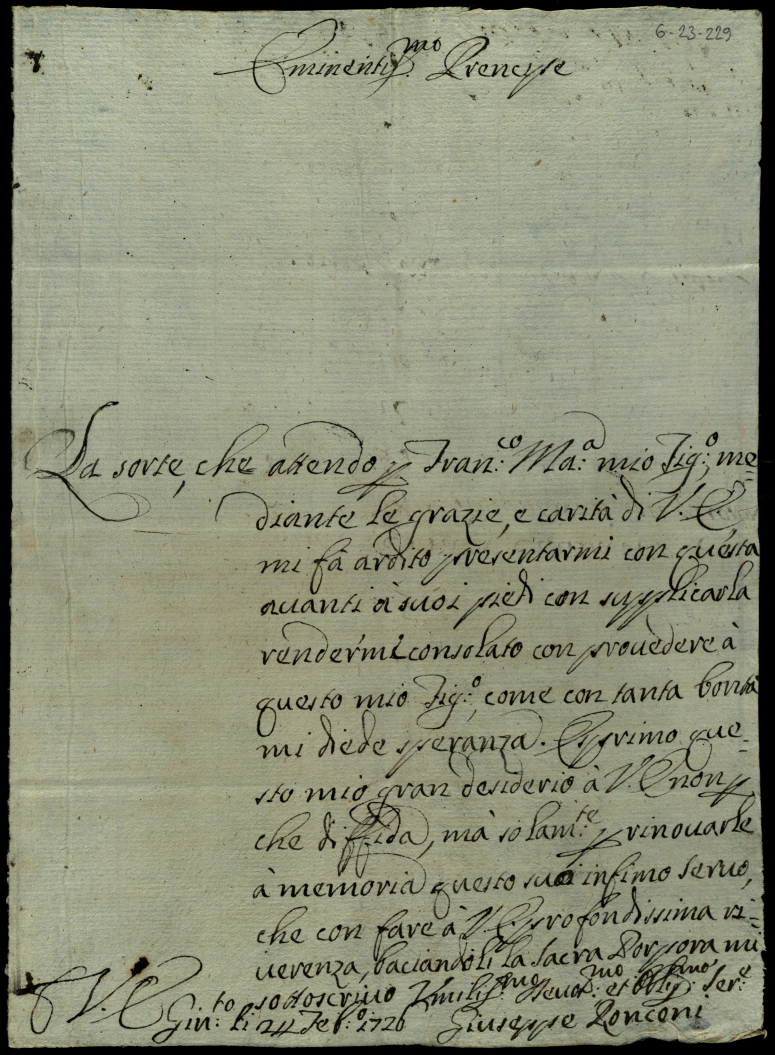 6-23-229
Eminentiss.mo Prencipe
La sorte, che attendo p Fran:co Ma:a mio Fig:o, me-
diante le grazie, e carità di V. E,
mi fà ardito presentarmi con questa
auanti à suoi piedi con supplicarla
rendermi consolato con prouèdere à
questo mio Fig:o, come con tanta bontà
mi diede speranza. Esprimo que-
sto mio gran desiderio à V. E non p
che diffida, mà solam:te p rinouarle
à memoria questo suo infimo seruo,
che con fare à V. E. profondissima ri-
uerenza, baciandoli la Sacra Porpora mi
sottoscriuo Vmiliss:mo Deuot:mo et Obl:mo Ser:e
V. E.
li 24 Feb:o 1726 Giuseppe Ronconi